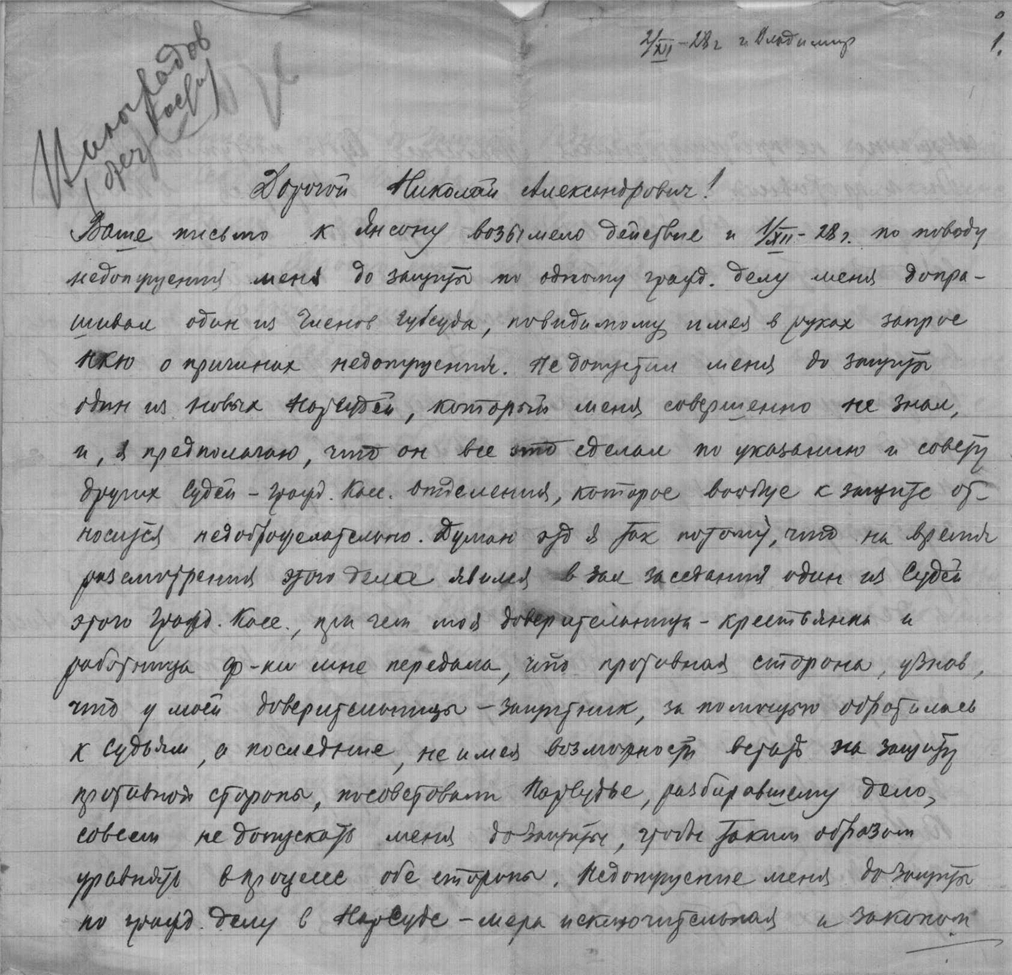 2/XII-28 г. г. Владимир
1.
Виноградов
Дорогой Николай Александрович!
Ваше письмо к Янсону возымело действие и 1/XII-28 г. по поводу
недопущения меня до защиты по одному гражд. делу меня допра-
шивал один из членов Губсуда, повидимому имея в руках запрос
НКЮ о причинах недопущения. Не допустил меня до защиты
один из новых Нарсудей, который меня совершенно не знал,
и, я предполагаю, что он все это сделал по указанию и совету
других судей – гражд. Касс. отделения, которое вообще к защите от-
носится недоброжелательно. Думаю это я так потому, что на время
рассмотрения этого дела явился в зал заседания один из Судей
этого Гражд. Касс., при чем моя доверительница – крестьянка и
работница ф-ки мне передала, что противная сторона, узнав,
что у моей доверительницы – защитник, за помощью обратилась
к судьям, а последние, не имея возможности встать на защиту
противной стороны, посоветовали Нарсудье, разбиравшему дело,
совсем не допускать меня до защиты, чтобы таким образом
уравнять в процессе обе стороны. Недопущение меня до защиты
по гражд. делу в НарСуде – мера исключительная и законом